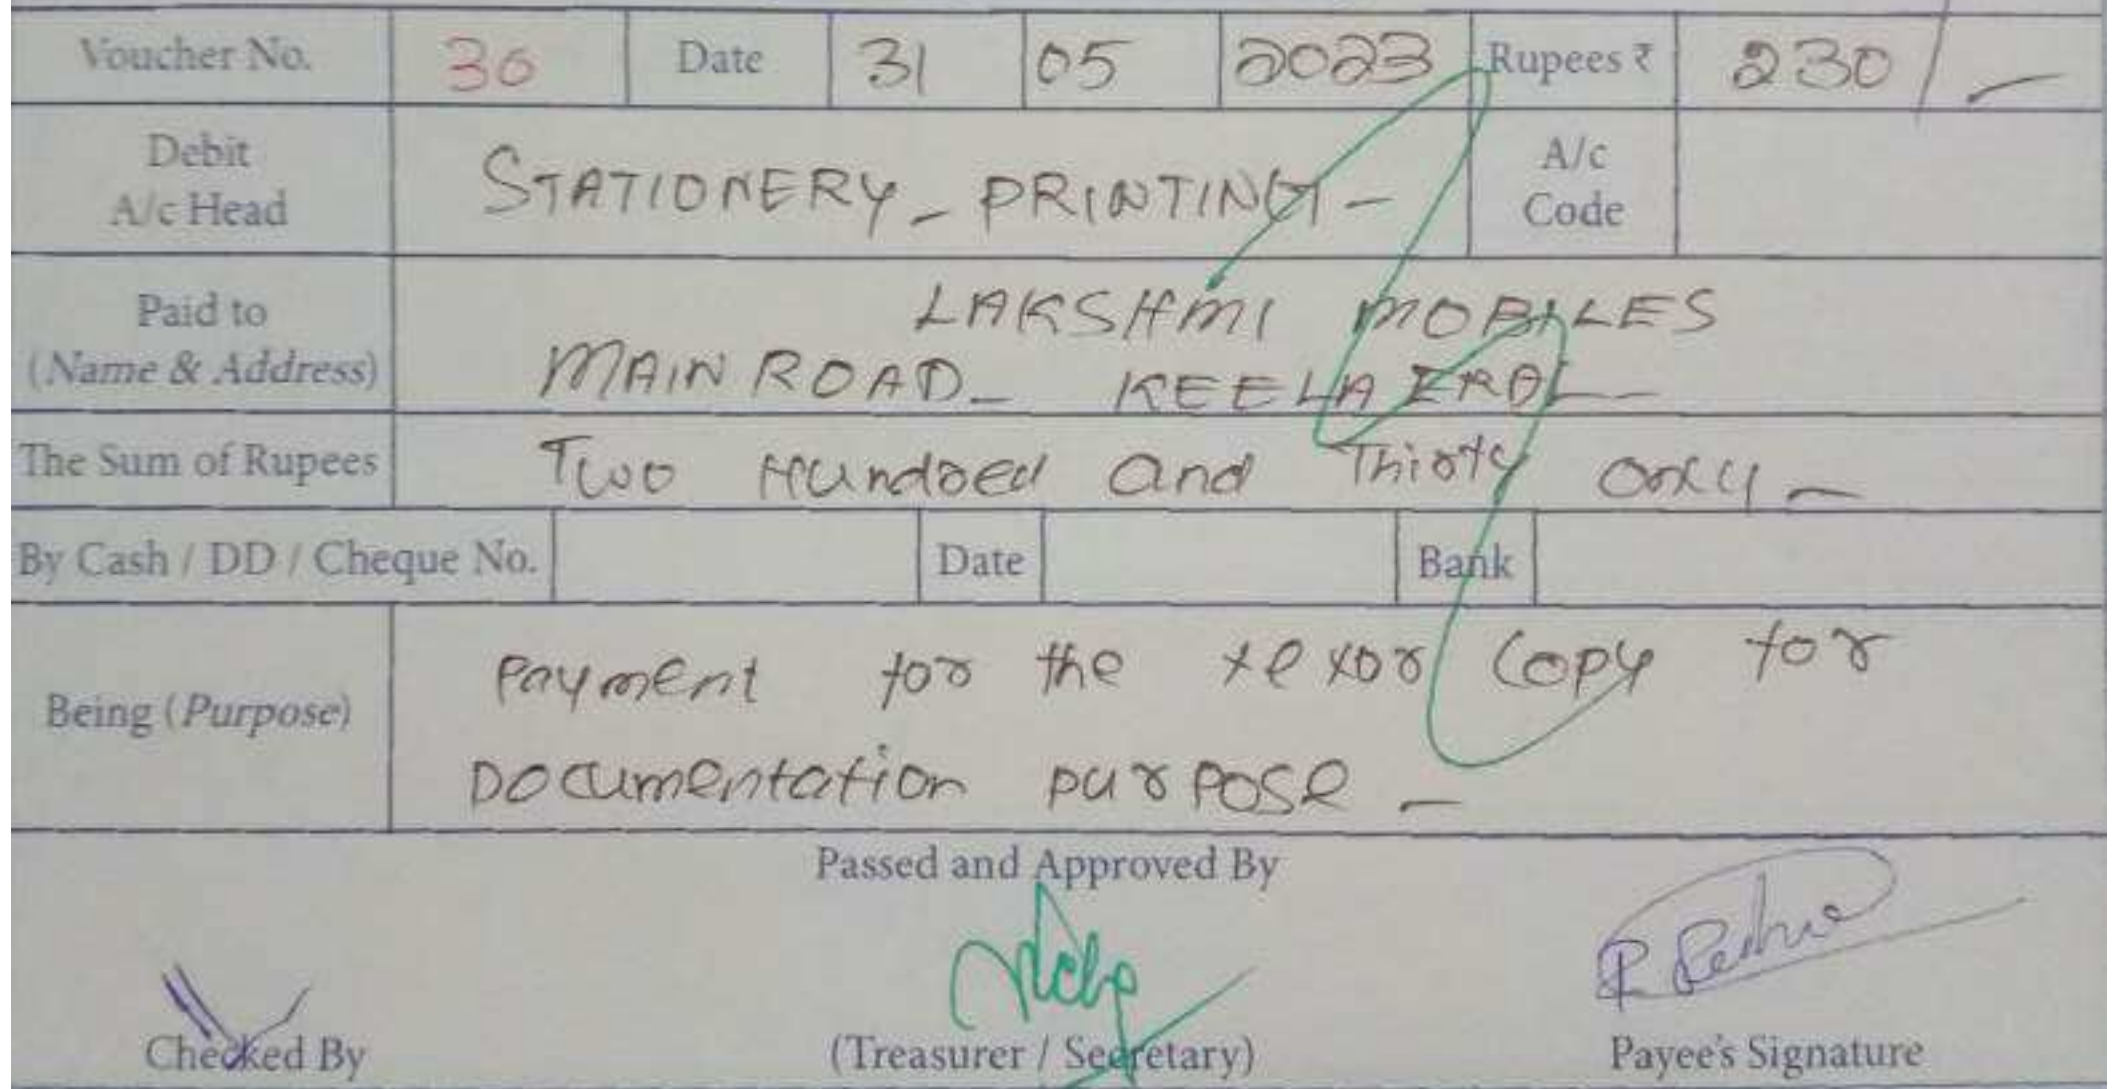 Voucher No. 30 Date 31 05 2023 Rupees ₹ 230/-
Debit
A/c Head
STATIONERY - PRINTING -
A/c
Code
Paid to
(Name & Address)
LAKSHMI MOBILES
MAIN ROAD - KEELA ERAL -
The Sum of Rupees Two Hundred and Thirty only -
By Cash / DD / Cheque No. Date Bank
Being (Purpose)
Payment for the xexor Copy for
Documentation purpose -
Passed and Approved By
Checked By (Treasurer / Secretary) Payee's Signature